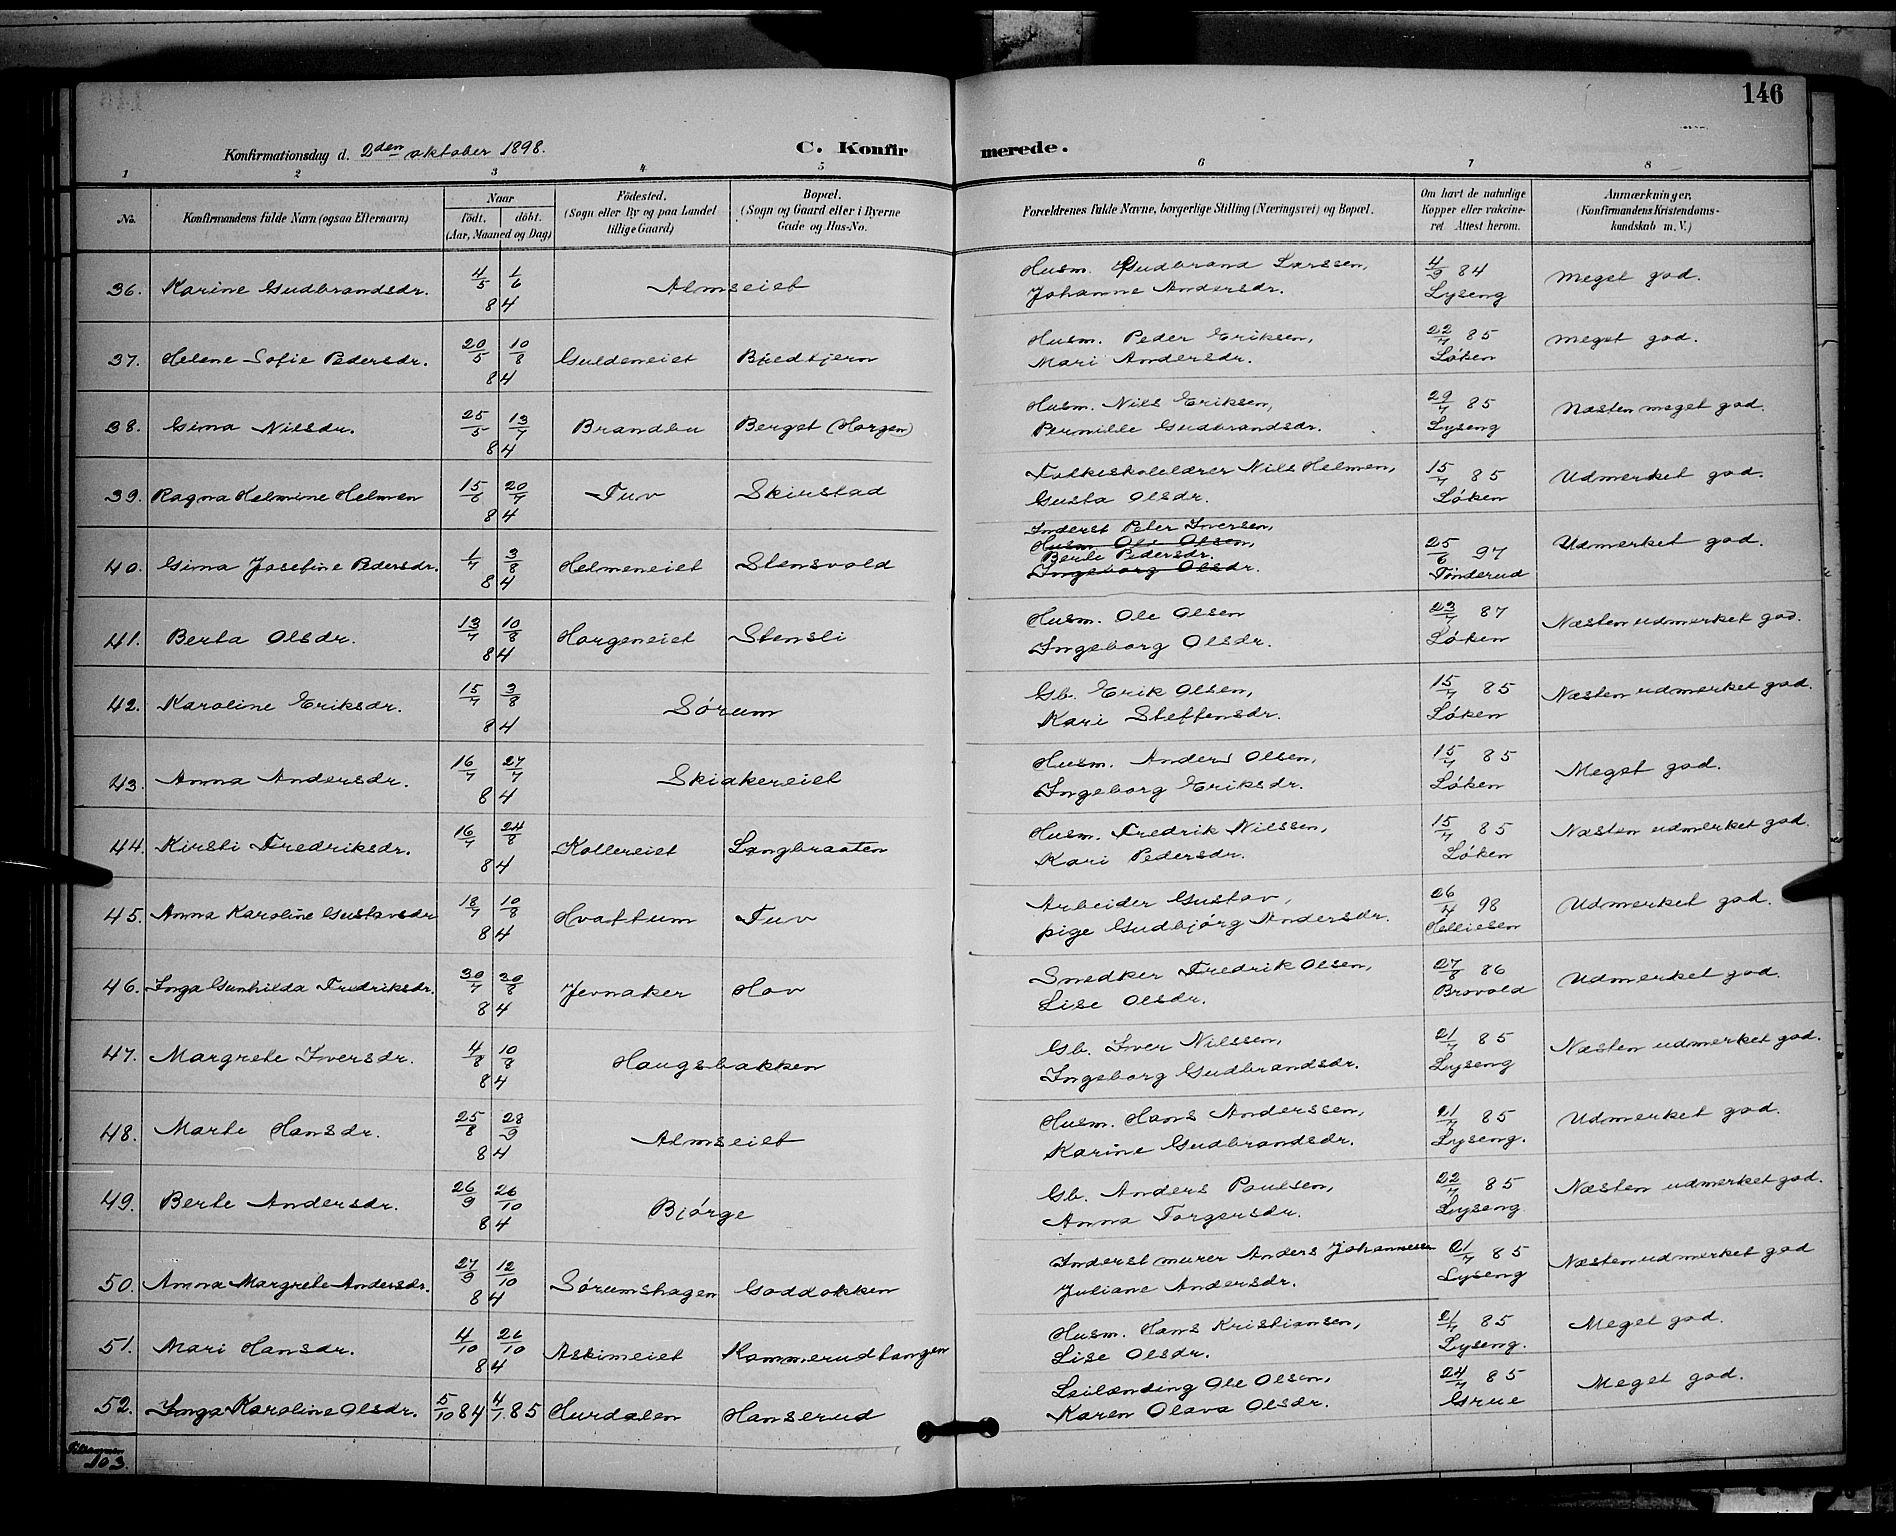 146
Konfirmationsdag d. 2den oktober 1898.
C. Konfirmerede.
1 2 3 4 5 6 7 8
No. Konfirmandens fulde Navn (ogsaa Efternavn) Naar født. døbt. (Aar, Maaned og Dag) Fødested. (Sogn eller By og paa Landet tillige Gaard) Bopæl. (Sogn og Gaard eller i Byerne Gade og Hus-No. Forældrenes fulde Navne, borgerlige Stilling (Næringsvei) og Bopæl. Om havt de naturlige Kopper eller vakcineret Attest herom. Anmærkninger. (Konfirmandens Kristendomskundskab m. V.)
36. Karine Gudbrandsdr. 4/5 1/6 84 Almseiet Husm. Gudbrand Larssen, Johanne Andersdr. 4/9 84 Lyseng Meget god.
37. Helene Sofie Pedersdr. 20/5 10/8 84 Guldeneiet Bjedtjern Husm. Peder Eriksen, Mari Andersdr. 22/7 85 Løken Meget god.
38. Gina Nilsdr. 25/5 13/7 84 Brandbu Berget (Horgen) Husm. Nils Eriksen, Pernille Gudbrandsdr. 29/7 85 Lyseng Næsten meget god.
39. Ragna Helmine Helmen 15/6 20/7 84 Tuv Skirstad Folkeskolelærer Nils Helmen, Gusta Olsdr. 15/7 85 Løken Udmerket god.
40. Gina Josefine Pedersdr. 1/7 3/8 84 Helmeneiet Stensvold Inderst Peter Iversen, Husm. Ole Olsen, Berte Pedersdr. Ingeborg Olsdr. 25/6 97 Tønderud Udmerket god.
41. Berta Olsdr. 13/7 10/8 84 Horgeneiet Stensli Husm. Ole Olsen Ingeborg Olsdr. 23/7 87 Løken Næsten udmerket god.
42. Karoline Eriksdr. 15/7 3/8 84 Sørum Gb. Erik Olsen, Kari Steffensdr. 15/7 85 Løken Næsten udmerket god.
43. Anna Andersdr. 16/7 27/7 84 Skiakereiet Husm. Anders Olsen, Ingeborg Eriksdr. 15/7 85 Løken Meget god.
44. Kirsti Fredriksdr. 16/7 24/8 84 Kollereiet Langbraaten Husm. Fredrik Nilssen, Kari Pedersdr. 15/7 85 Løken Næsten udmerket god.
45. Anna Karoline Gustavsdr 18/7 10/8 84 Hvattum Tuv Arbeider Gustav, pige Gudbjørg Andersdr. 26/4 98 Helliesen Udmerket god.
46. Inga Gunhilda Fredriksdr. 30/7 20/8 84 Jevnaker Hov Snedker Fredrik Olsen, Lise Olsdr. 27/8 86 Brovold Udmerket god.
47. Margrete Iversdr. 4/8 10/8 84 Haugsbakken Gb. Iver Nilssen, Ingeborg Gudbrandsdr. 21/7 85 Lyseng Næsten udmerket god.
48. Marte Hansdr. 25/8 28/9 84 Almseiet Husm. Hans Anderssen, Karine Gudbrandsdr. 21/7 85 Lyseng. Udmerket god.
49. Berte Andersdr. 26/9 26/10 84 Bjørge Gb. Anders Paulsen, Anna Torgersdr. 22/7 85 Lyseng Næsten udmerket god.
50. Anna Margrete Andersdr. 27/9 12/10 84 Sørumshagen Goddokken Inderst murer Anders Johannesen Juliane Andersdr. 21/7 85 Lyseng Næsten udmerket god
51. Mari Hansdr. 4/10 26/10 84 Askimeiet Kammerudtangen Husm. Hans Kristiansen, Lise Olsdr. 21/7 85 Lyseng. Meget god.
52. Inga Karoline Olsdr. 5/10 84 4/1 85 Hurdalen Hanserud Leilænding Ole Olsen, Karen Olava Olsdr. 24/7 85 Grue Meget god.
Tilsammen 103.